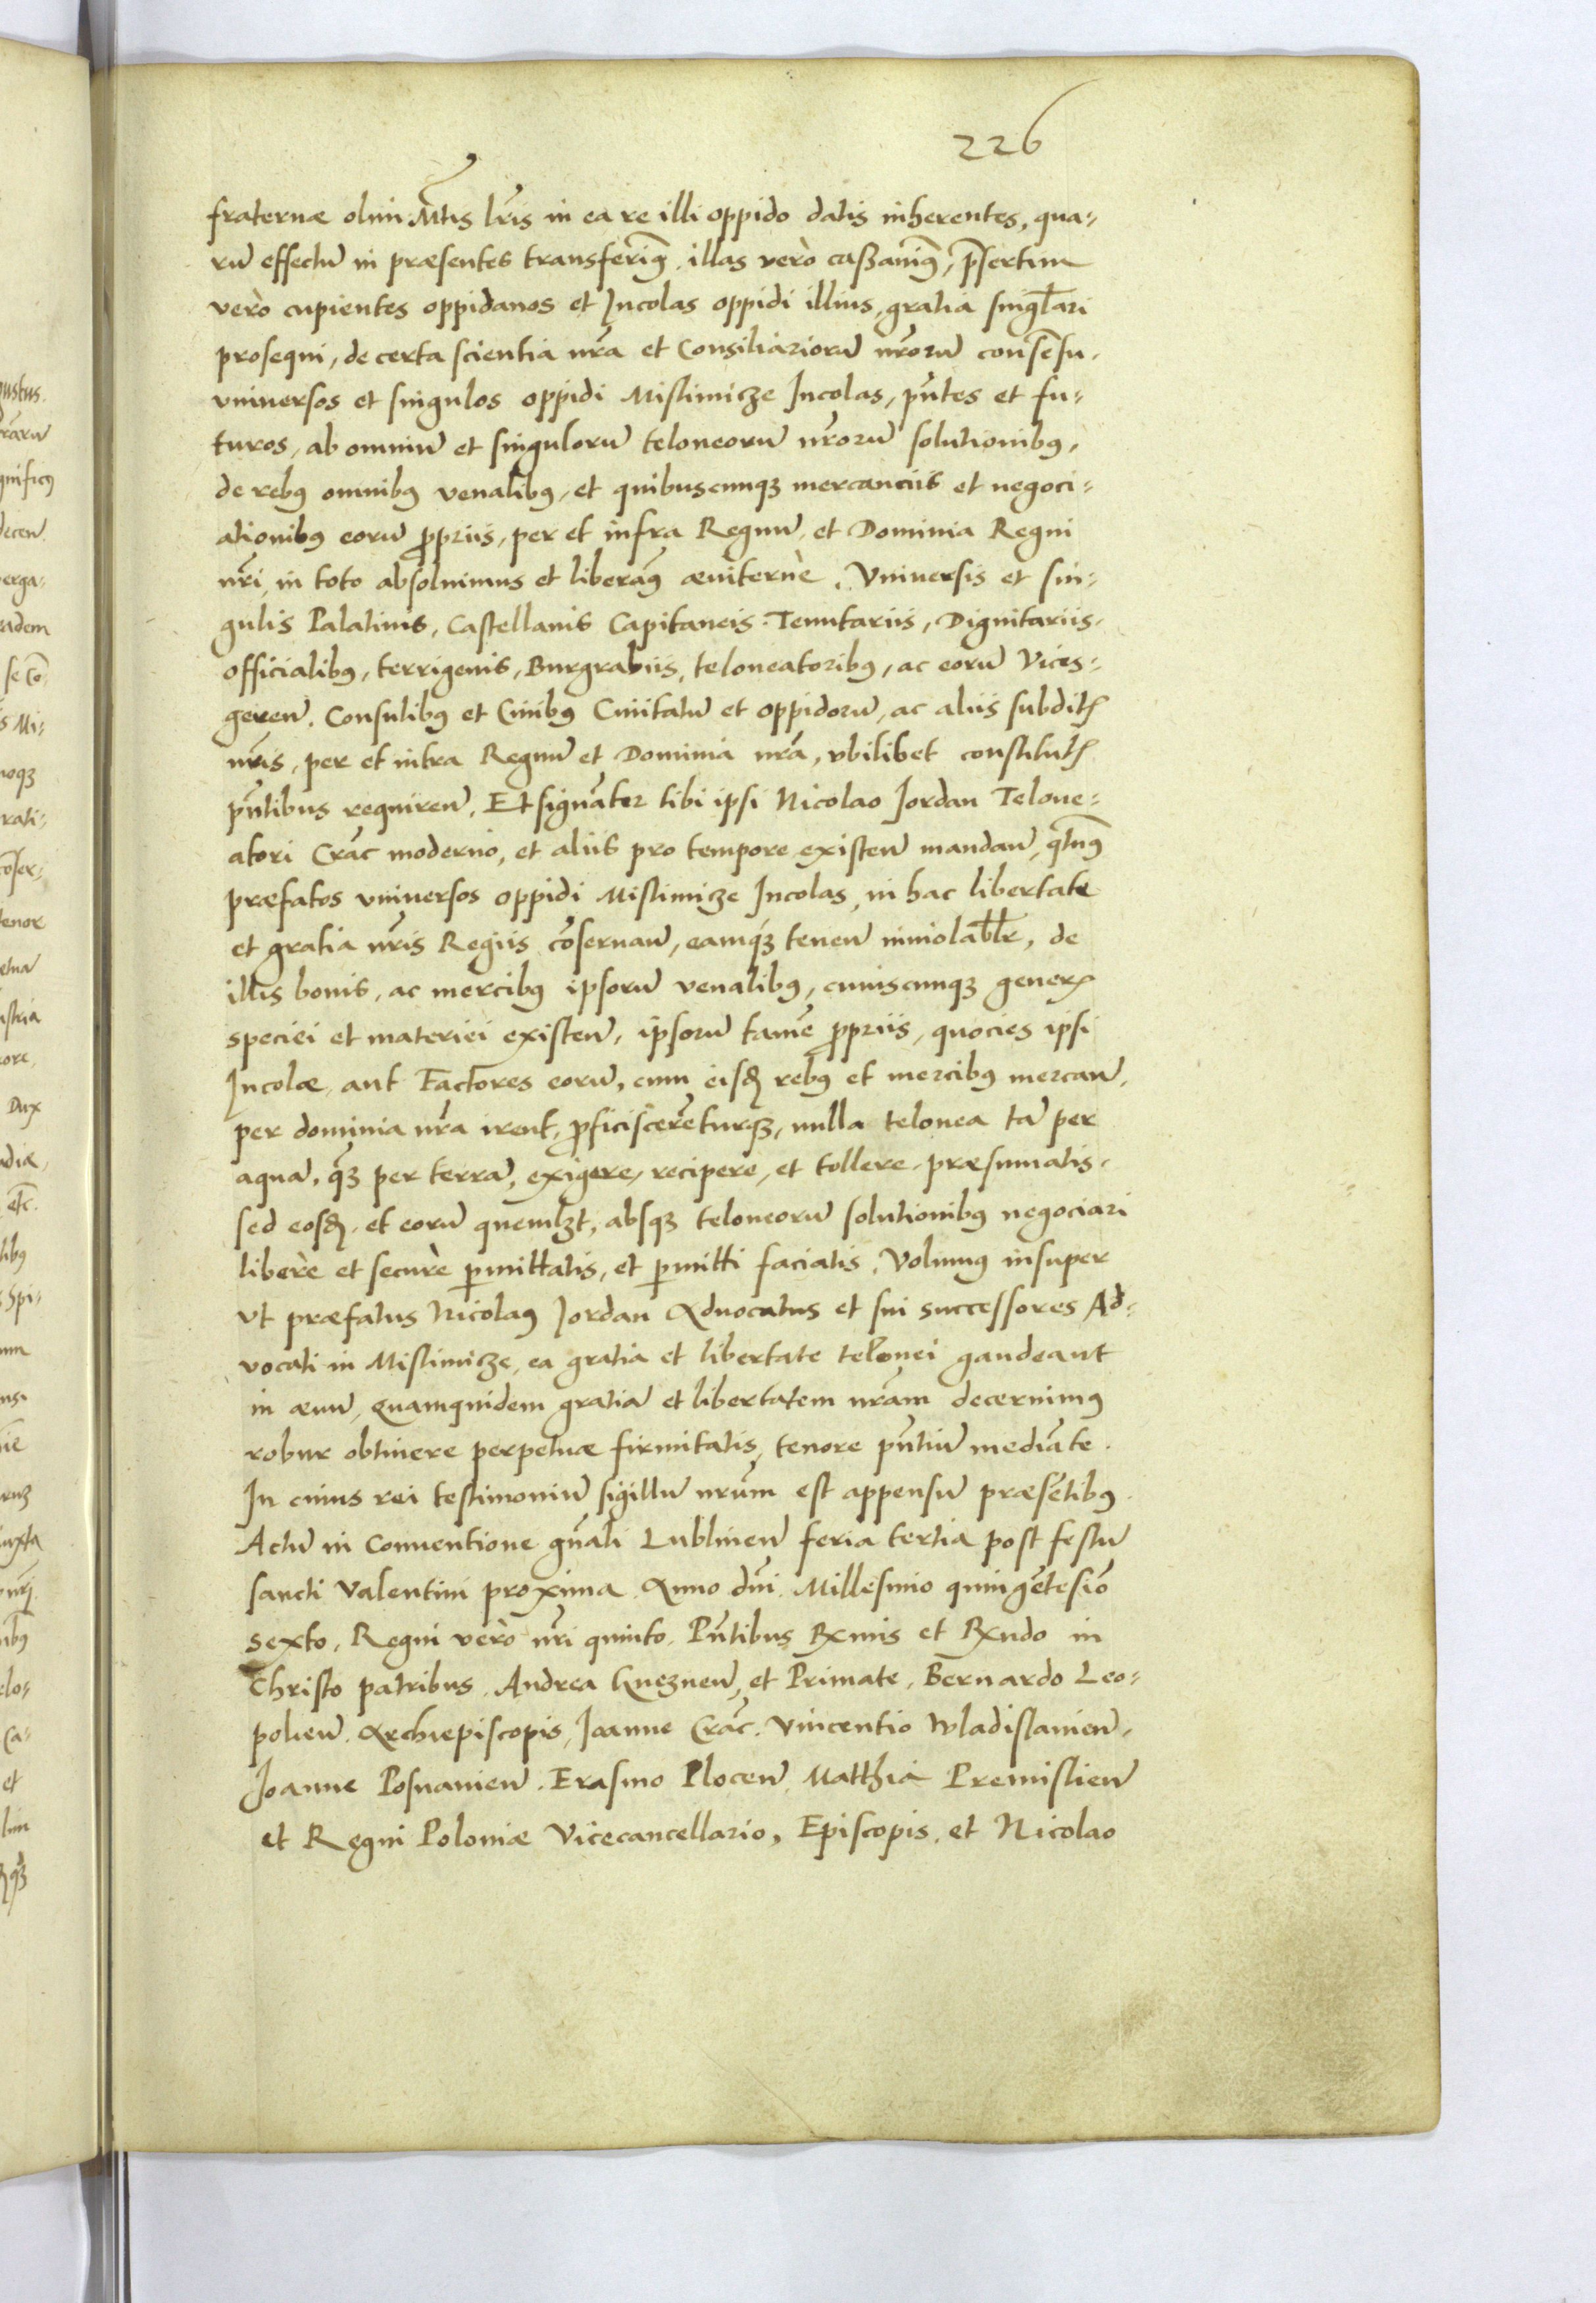 226
fraternæ olim Mtis lris in ea re illi oppido datis inherentes, qua-
rũ effectũ in præsentes transferimꝰ, illas verò caßamꝰ, p̃sertim
verò cupientes oppidanos et Incolas oppidi illius, gratia singlari
prosequi, de certa scientia nr̃a et Consiliariorũ nr̃orũ consẽsu,
vniuersos et singulos oppidi Mislimicze Incolas, pñtes et fu-
turos, ab omniũ et singulorũ teloneorũ nr̃orũ solutionibꝰ,
de rebꝰ omnibꝰ venalibꝰ, et quibuscunqꝫ mercanciis et negoci-
ationibꝰ eorũ ꝓpriis, per et infra Regnũ, et Dominia Regni
nr̃i, in toto absoluimus et liberamꝰ æuiternè. Vniuersis et sin-
gulis Palatinis, Castellanis Capitaneis. Tenutariis, Dignitariis,
officialibꝰ, terrigenis, Burgrabiis, teloneatoribꝰ, ac eorũ Vices-
gereñ. Consulibꝰ et Ciuibꝰ Ciuitatũ et oppidorũ, ac aliis subditꝭ
nr̃is, per et intra Regnũ et Dominia nr̃a, vbilibet constitutꝭ
pñtibus requireñ. Et signãter tibi ipsi Nicolao Jordan Telone-
atori Crac̃ moderno, et aliis pro tempore existeñ mandañ, q̃tnꝰ
præfatos vniuersos oppidi Mislimicze Incolas, in hac libertate
et gratia nr̃is Regiis cõseruañ, eamqꝫ teneñ inuiolabl̃r, de
illis bonis, ac mercibꝰ ipsorũ venalibꝰ, cuiuscunqꝫ generꝭ
speciei et materiei existeñ, ipsorũ tamẽ ꝓpriis, quocies ipsi
Incolæ, aut Factores eorũ, cum eisdꝫ rebꝰ et mercibꝰ mercañ,
per dominia nr̃a irent, ꝓficiscerẽturqꝫ, nulla telonea tã per
aquã, qꝫ per terrã, exigere, recipere, et tollere præsumatis,
sed eosdꝫ, et eorũ quemlꝫt, absqꝫ teloneorũ solutionibꝰ negociari
liberè et securè ꝑmittatis, et ꝑmitti faciatis. Volumꝰ insuper
vt præfatus Nicolaꝰ Jordan Aduocatus et sui successores Ad-
vocati in Mislimicze, ea gratia et libertate telonei gaudeant
in æuũ, quamquidem gratiã et libertatem nr̃am decernimꝰ
robur obtinere perpetuæ firmitatis, tenore pñtiũ mediãte.
In cuius rei testimoniũ sigillũ nr̃um est appensũ præsẽtibꝰ.
Actũ in Conuentione gñali Lublineñ feria tertia post festũ
sancti Valentini proxima. Anno dñi. Millesimo quingẽtesiõ
sexto, Regni verò nr̃i quinto. Pñtibus Rxmis et Rxndo in
Christo patribus. Andrea Gnezneñ, et Primate, Bernardo Leo-
polieñ. Archiepiscopis, Joanne Crac̃. Vincentio Wladislauieñ,
Joanne Posnanieñ. Erasmo Ploceñ. Matthia Premislieñ
et Regni Poloniæ Vicecancellario, Episcopis, et Nicolao